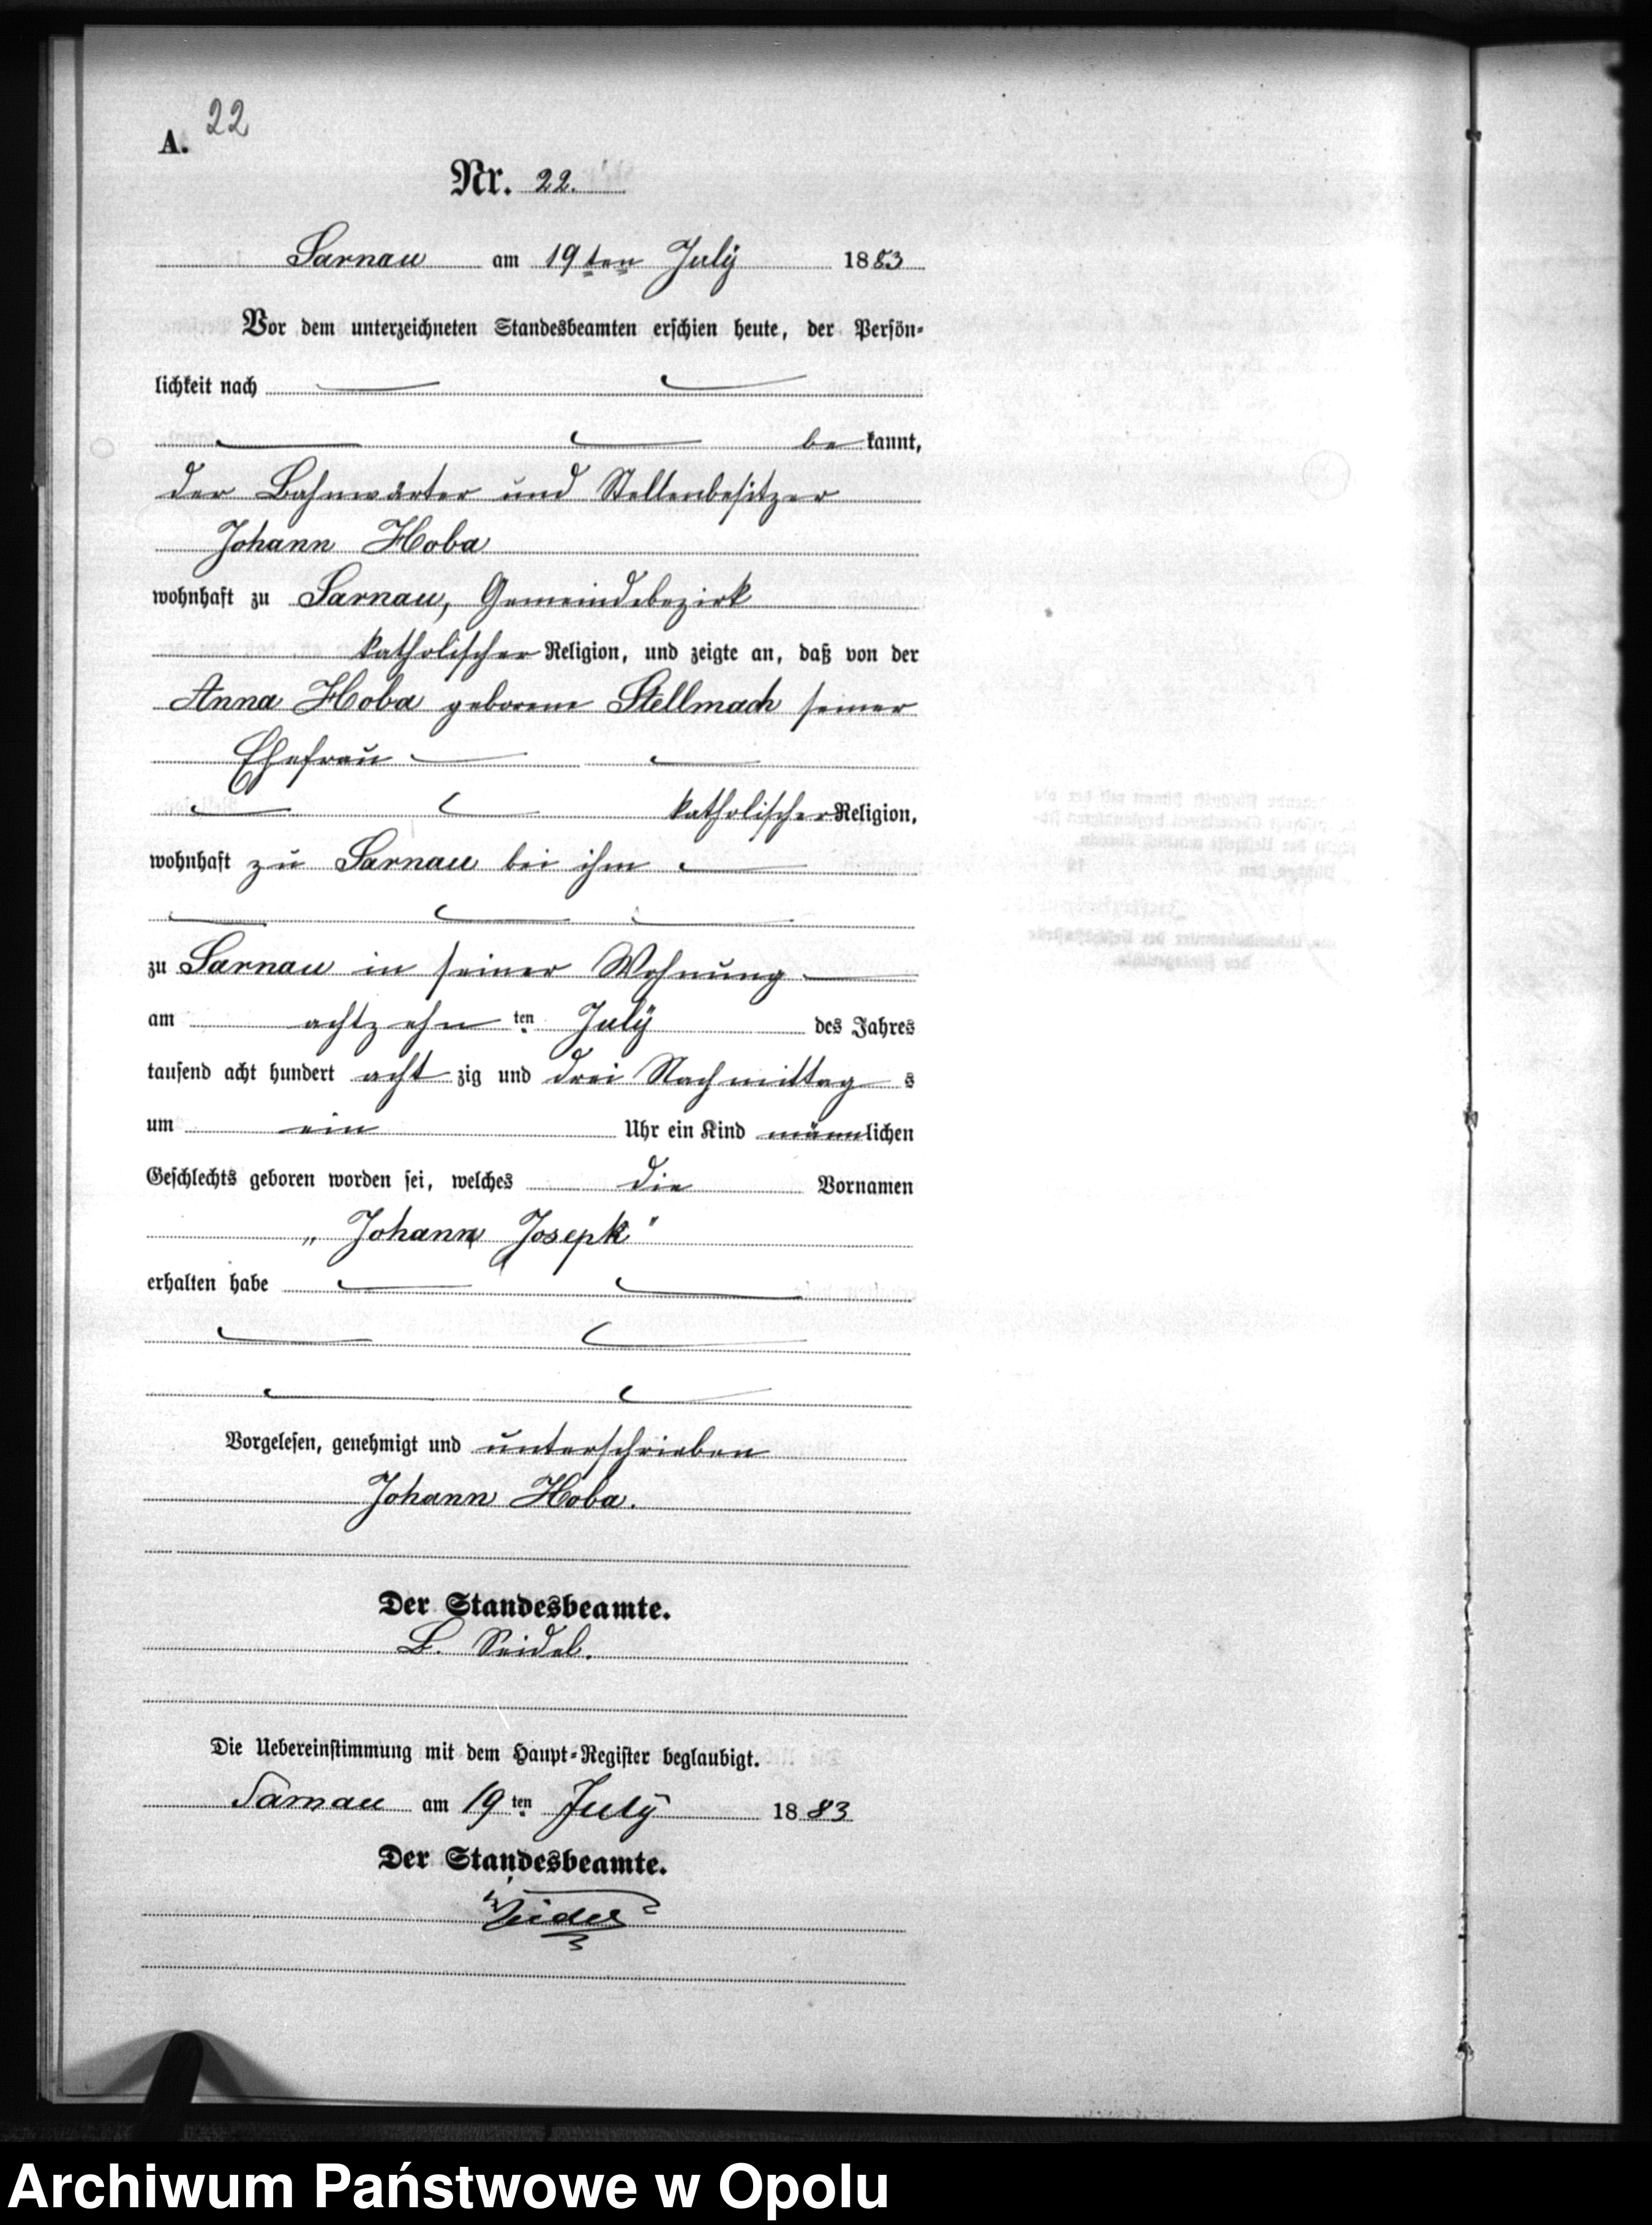 22
A.
Nr. 22.
Sarnau am 19ten July 1883
Vor dem unterzeichneten Standesbeamten erschien heute, der Persön-
lichkeit nach
be kannt,
der Bahnwärter und Stellenbesitzer
Johann Hoba
wohnhaft zu Sarnau, Gemeindebezirk
katholischer Religion, und zeigte an, daß von der
Anna Hoba geborene Stellmach seiner
Ehefrau
katholischer Religion,
wohnhaft zu Sarnau bei ihm
zu Sarnau in seiner Wohnung
am achtzehn ten July des Jahres
tausend acht hundert acht zig und drei Nachmittag s
um ein Uhr ein Kind männlichen
Geschlechts geboren worden sei, welches die Vornamen
„Johann Joseph"
erhalten habe
Vorgelesen, genehmigt und unterschrieben
Johann Hoba.
Der Standesbeamte.
Seidel.
Die Uebereinstimmung mit dem Haupt-Register beglaubigt.
Sarnau am 19 ten July 1883
Der Standesbeamte.
Seidel
Archiwum Państwowe w Opolu